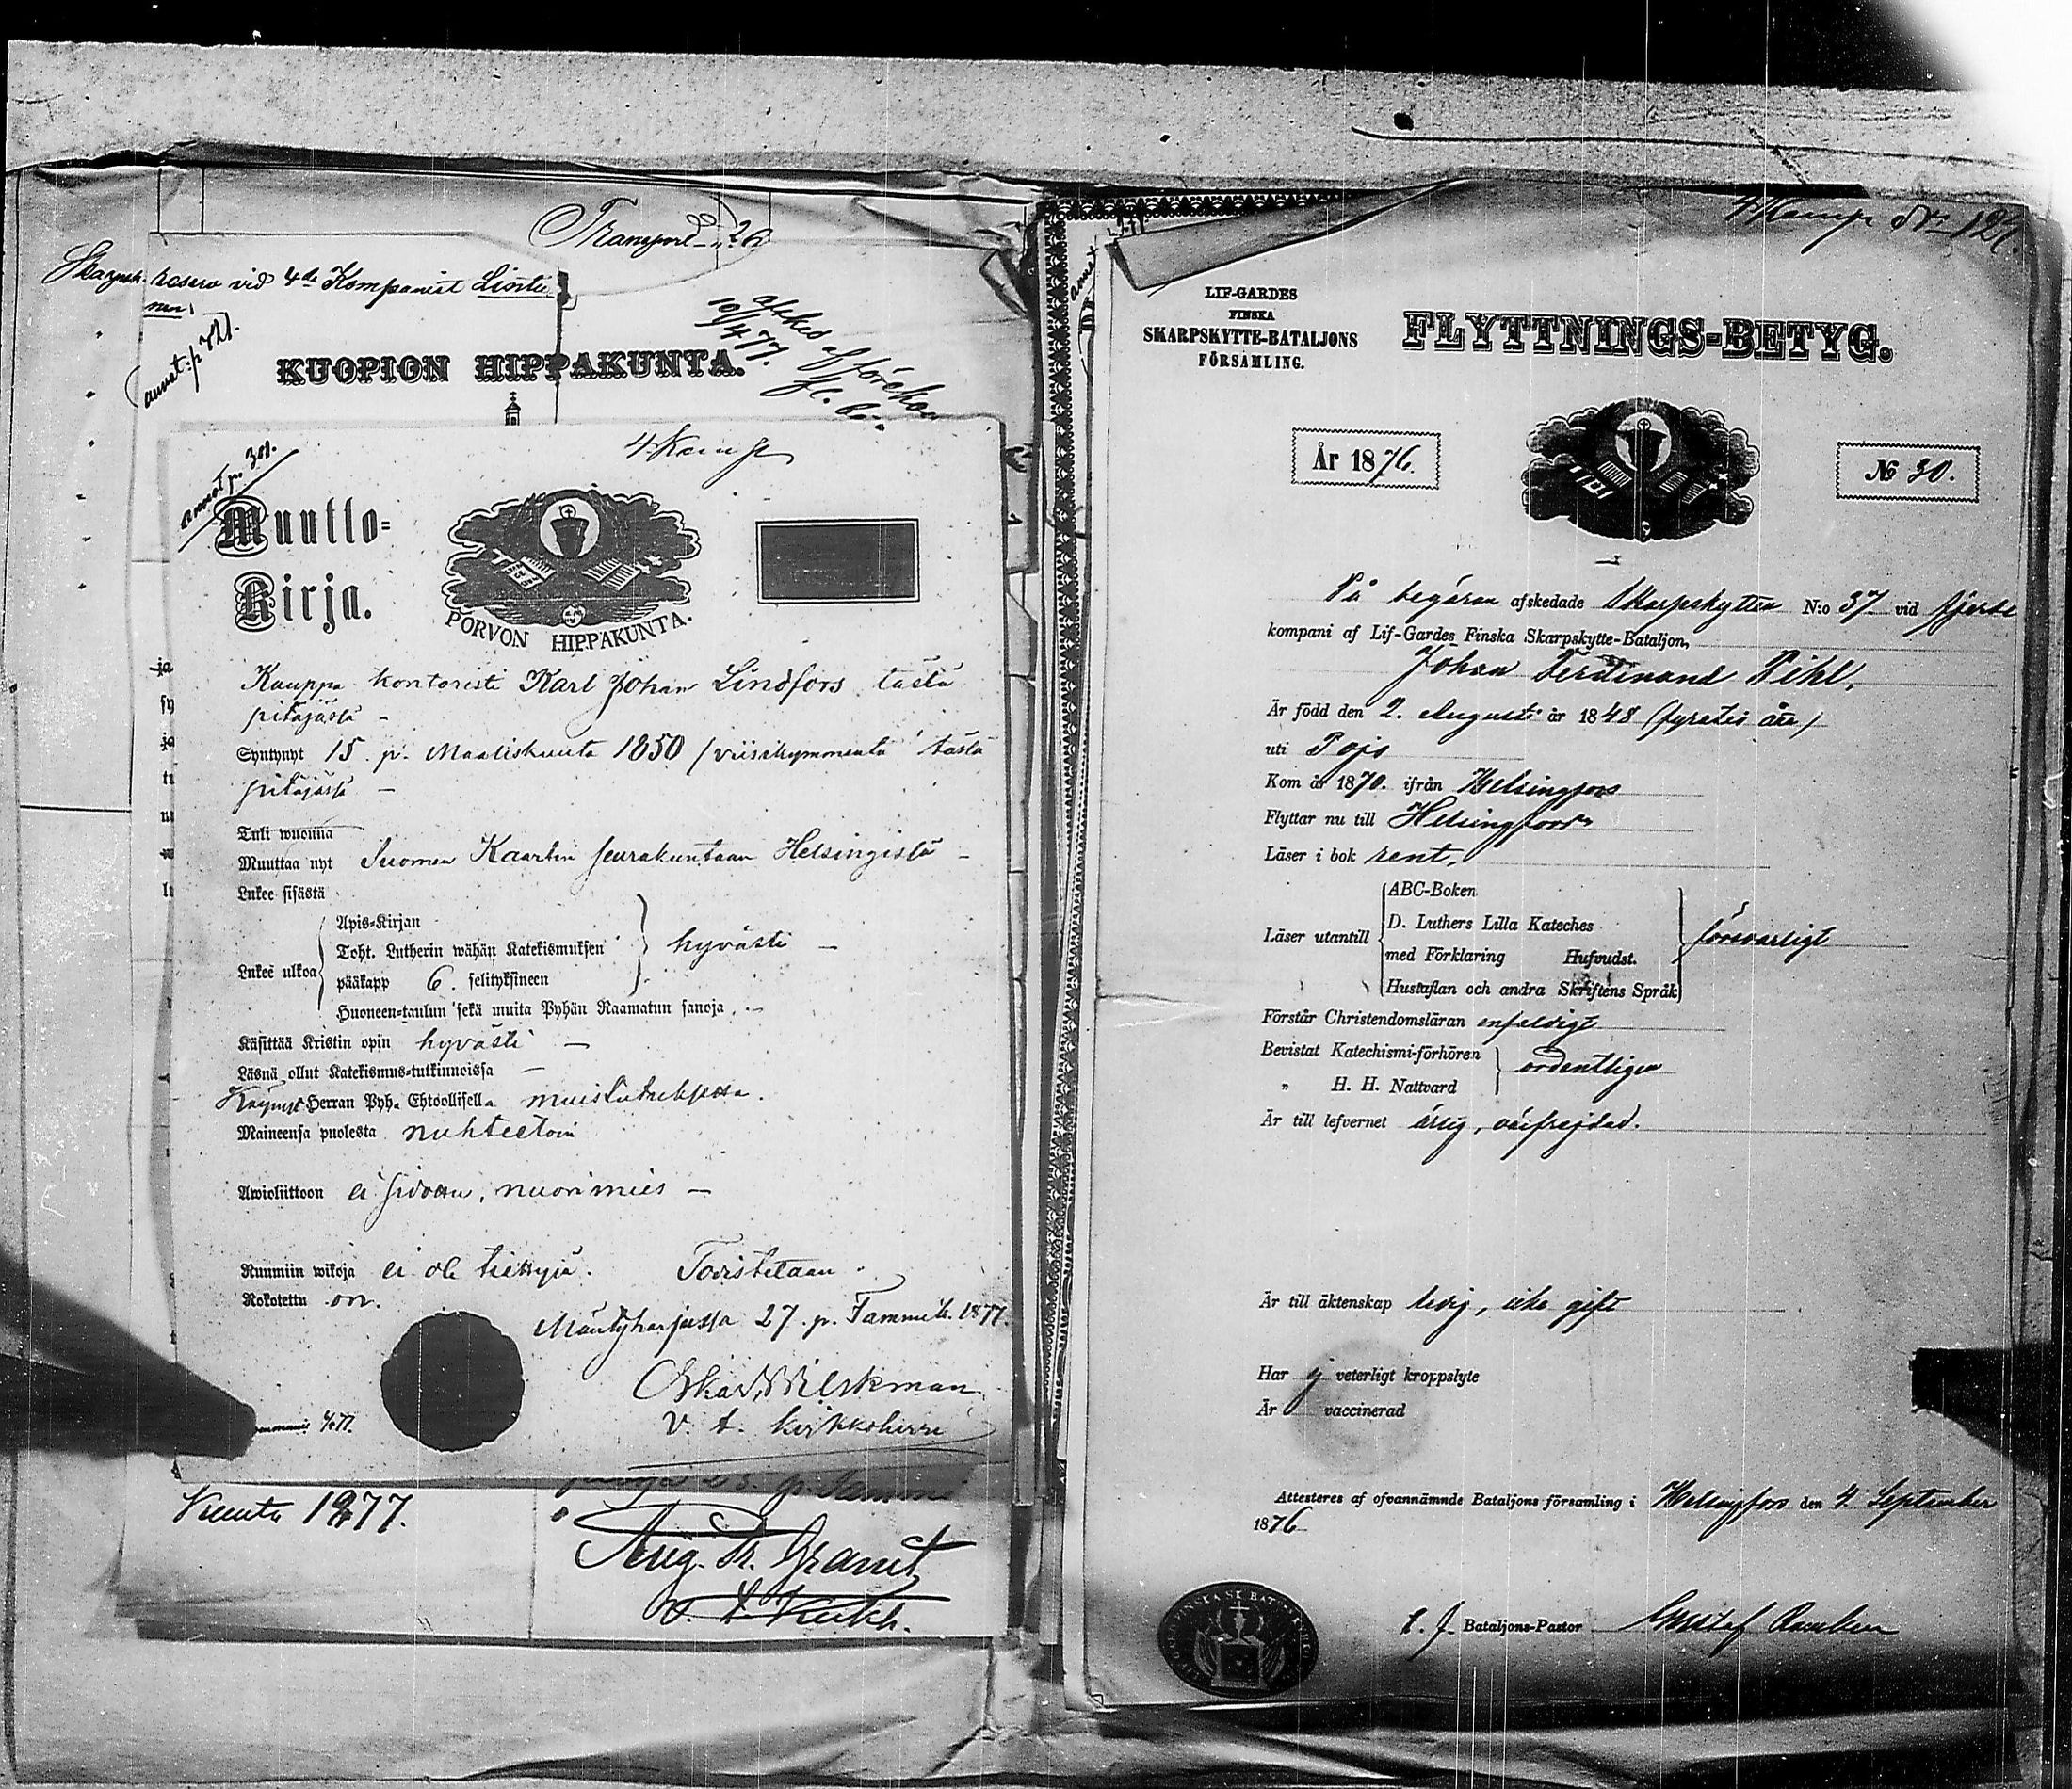 Transport 26
Skarpsk. reserv vid 4de Kompaniet Lintu
nen
annot: p 721.
afsked af
10/4 77.
KUOPION HIPPAKUNTA.
annot p. 301.
4 Komp
Muutto-
Kirja.
PORVON HIPPAKUNTA.
Kauppa kontoristi Karl Johan Lindfors tästä
pitäjästä –
Syntynyt 15 p. Maaliskuuta 1850 /viisikymmentä/ tästä
pitäjästä –
Tuli wuonna
Muuttaa nyt Suomen Kaartin seurakuntaan Helsingissä –
Lukee sisästä
Lukee ulkoa
Apis-Kirjan
Toht. Lutherin wähän Katekismuksen
pääkapp 6. selityksineen
hyvästi –
Huoneen-taulun sekä muita Pyhän Raamatun sanoja. –
Käsittää Kristin opin hyvästi –
Läsnä ollut Katekismus-tutkinnoissa –
Käynyt Herran Pyh. Ehtoollisella muistutuksetta.
Maineensa puolesta nuhteetoin
Awioliittoon ei sidottu, nuori mies –
Ruumiin wikoja ei ole tiettyjä. Todistetaan
Rokotettu on.
Mäntyharjussa 27. p. Tammik. 1877.
Oskar Wilskman
v. t. kirkkoherra
Kuuta 1877.
Aug. Fr. Granit
v. t. Kirkkh.
4 Komp. No 121.
LIF-GARDES
FINSKA
SKARPSKYTTE-BATALJONS
FÖRSAMLING.
FLYTTNINGS-BETYG.
År 1876.
№ 30.
På begäran afskedade Skarpskytten N:o 37 vid fjerde
kompani af Lif-Gardes Finska Skarpskytte-Bataljon,
Johan Ferdinand Pihl,
Är född den 2. Augusti år 1848 (fyratio åtta)
uti Pojo
Kom år 1870. ifrån Helsingfors
Flyttar nu till Helsingfors
Läser i bok rent,
Läser utantill
ABC-Boken
D. Luthers Lilla Kateches
med Förklaring Hufvudst.
Hustaflan och andra Skriftens Språk
försvarligt
Förstår Christendomsläran enfaldigt
Bevistat Katechismi-förhören
„ H. H. Nattvard
ordentligen
Är till lefvernet ärlig, välfrejdad.
Är till äktenskap ledig, icke gift
Har ej veterligt kroppslyte
Är vaccinerad
Attesteres af ofvannämnde Bataljons församling i Helsingfors den 4. September
1876
t. f. Bataljons-Pastor Gustaf